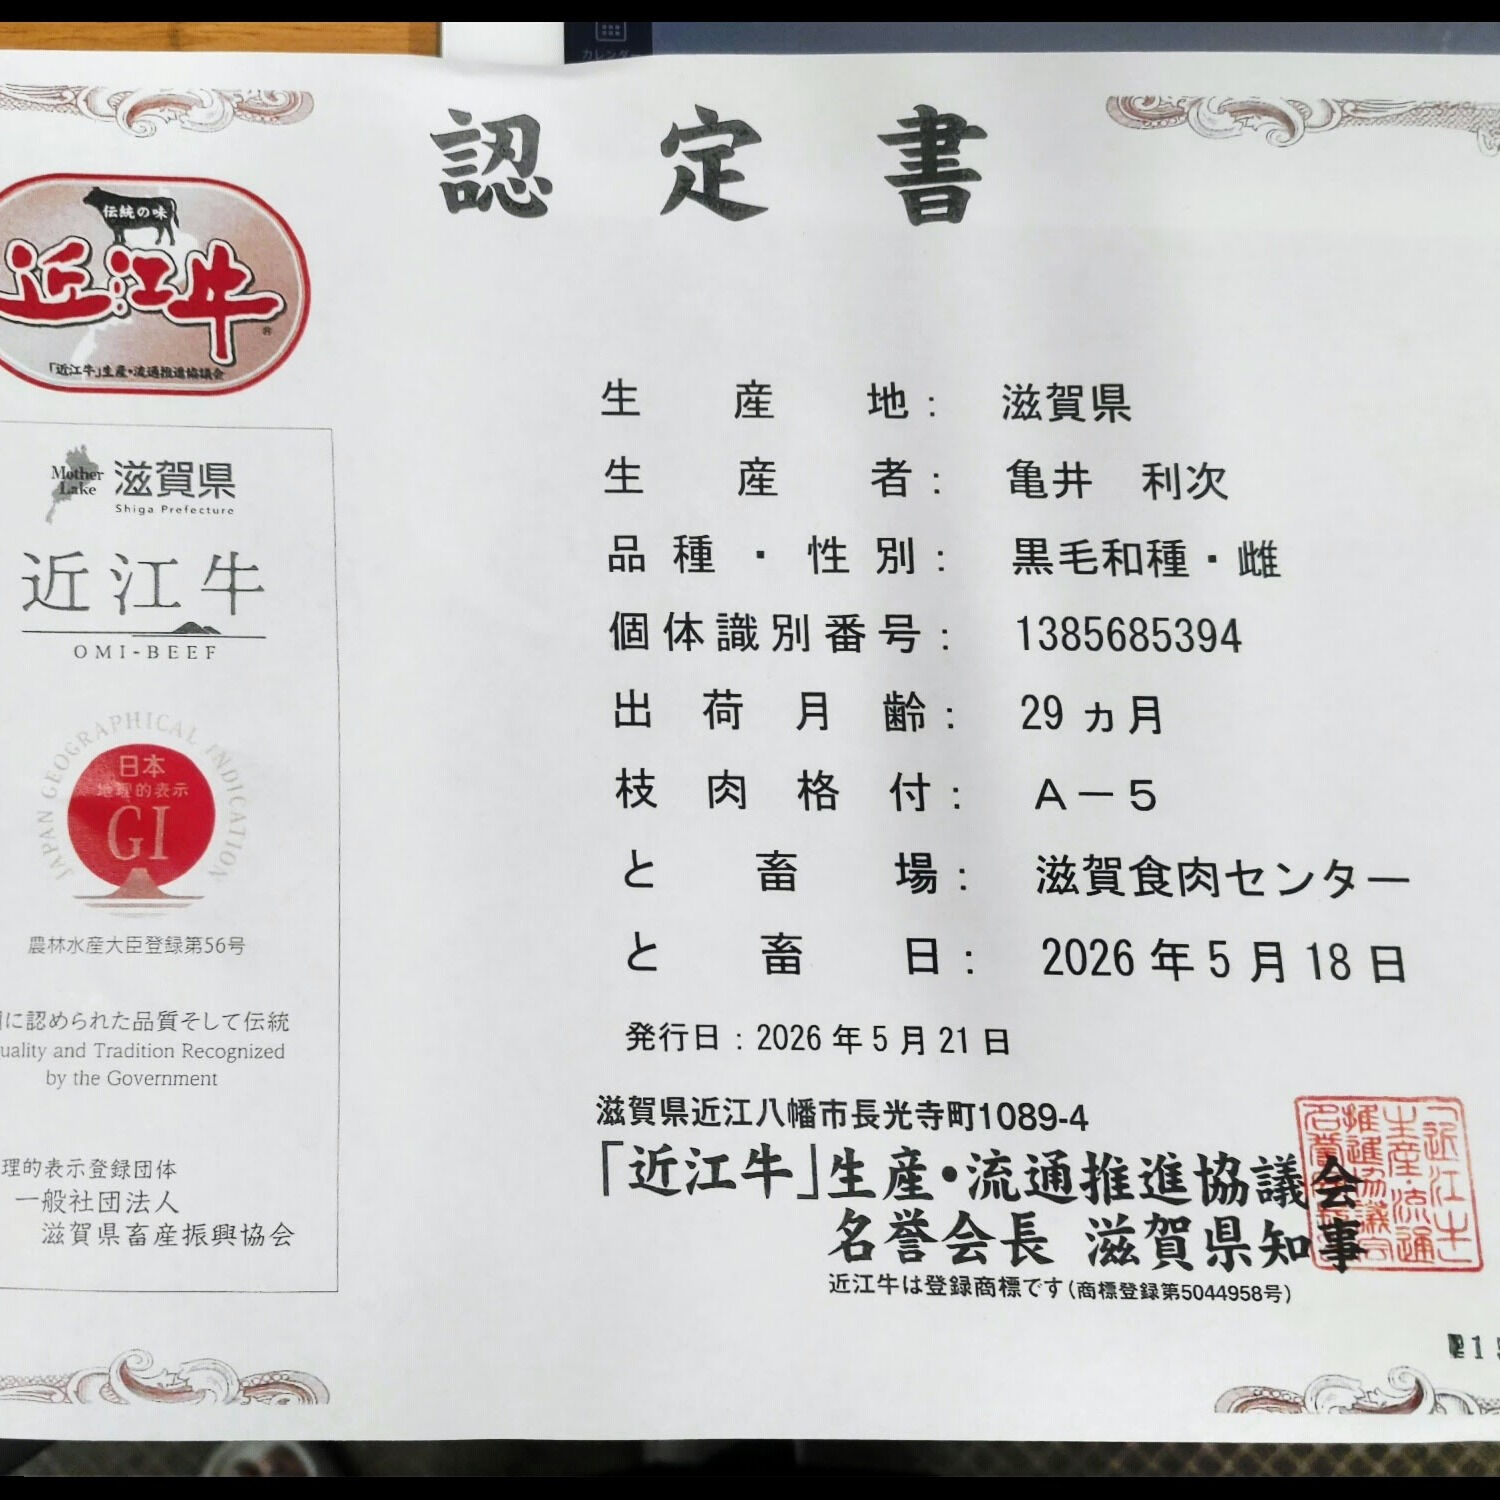 カレンダー
認定書
伝統の味
近江牛
®
「近江牛」生産・流通推進協議会
Mother Lake
滋賀県
Shiga Prefecture
近江牛
OMI-BEEF
JAPAN GEOGRAPHICAL INDICATION
日本
地理的表示
GI
農林水産大臣登録第56号
に認められた品質そして伝統
uality and Tradition Recognized
by the Government
理的表示登録団体
一般社団法人
滋賀県畜産振興協会
生産地： 滋賀県
生産者： 亀井 利次
品種・性別： 黒毛和種・雌
個体識別番号： 1385685394
出荷月齢： 29 ヵ月
枝肉格付： A－5
と畜場： 滋賀食肉センター
と畜日： 2026 年 5 月 18 日
発行日：2026 年 5 月 21 日
滋賀県近江八幡市長光寺町1089-4
「近江牛」生産・流通推進協議会
名誉会長 滋賀県知事
近江牛は登録商標です(商標登録第5044958号)